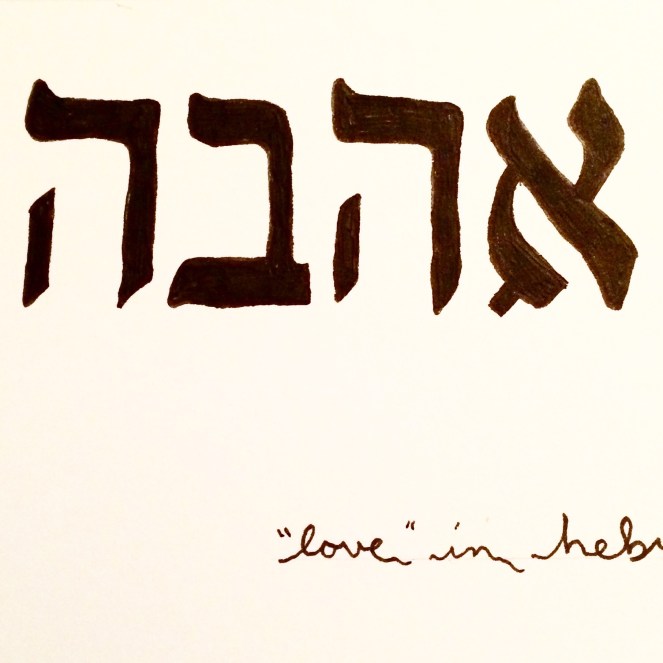 אהבה
"love" in hebr